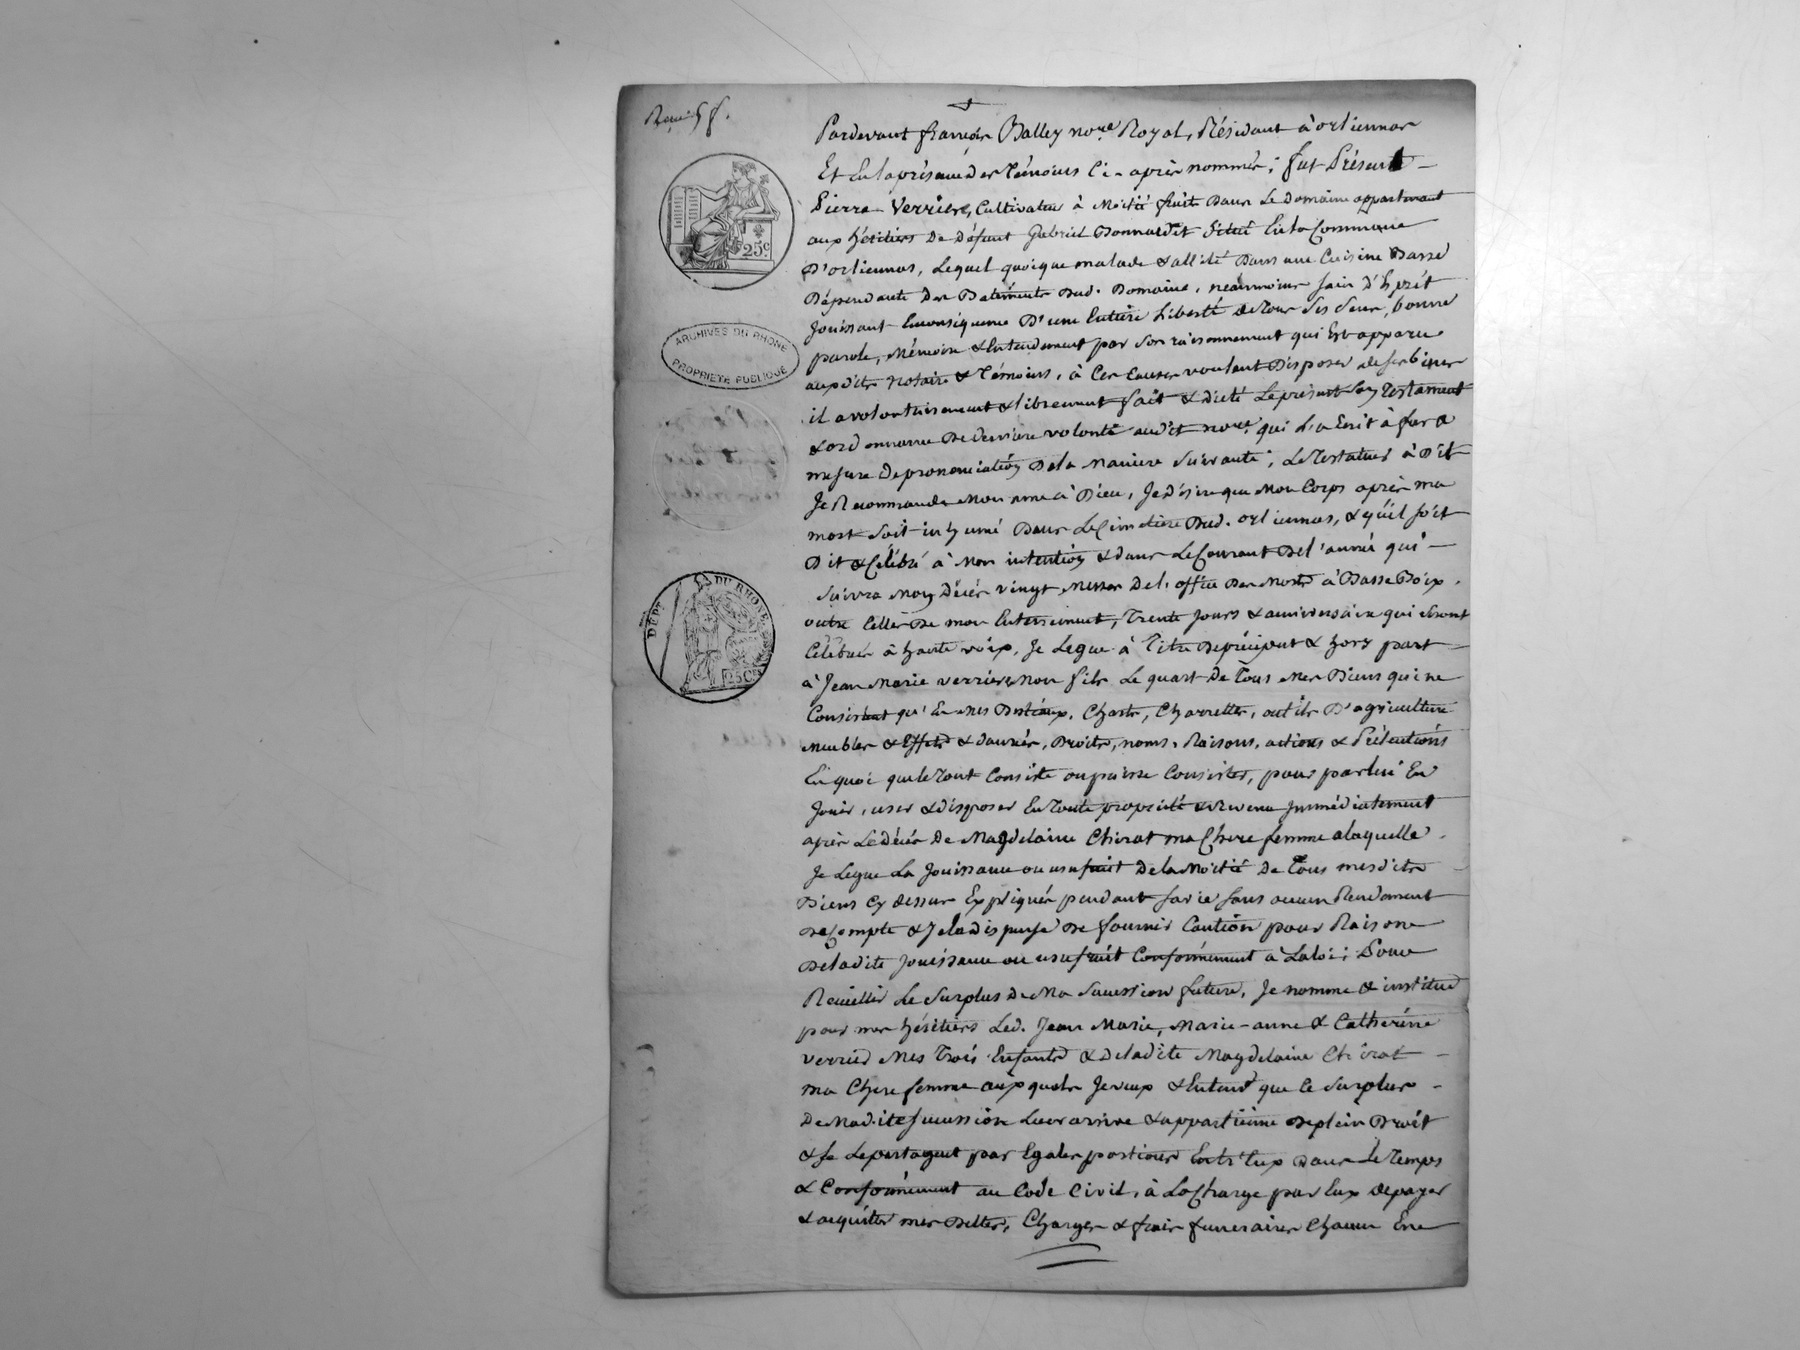 25c.
ARCHIVES DU RHONE
PROPRIETE PUBLIQUE
DEPT DU RHONE
25C
Pardevant françois Balley nore Royal, Résidant à orliennas
Et En la présence des Témoins Ci-après nommés; fut Présent
Pierre Verriere, Cultivateur à Moitié fruits Dans Le Domaine appartenant
aux héritiers De Défunt Gabriel Bonnardet Situé En la Commune
D'orliennas, Lequel quoique malade & allité Dans une Cuisine Basse
Dépendante Des Batiments Dud. Domaine, néanmoins sain D'Esprit
Jouissant Enconséquence D'une Entiere Liberté de tous Ses Sens, bonne
parole, Mémoire & Entendement par Son raisonnement qui Est apparu
auxdits Notaire & Témoins, à Ces Causes voulant Disposer de ses biens
il a volontairement & librement fait & dicté Le présent Son Testament
& ordonnance De Derniere volonté audit nore. qui L'a Ecrit à fur &
mesure De prononciation De la Maniere Suivante; Le Testateur à Dit
Je Recommande Mon ame à Dieu, Je Désire que Mon Corps après ma
mort Soit inhumé Dans Le Cimetiere Dud. orliennas, & qu'il soit
Dit & Célébré à Mon intention & dans Le Courant De l'année qui
Suivra Mon Décès vingt Messes De l'office Des Morts à Basse Voix,
outre Celles De mon Enterrement, Trente Jours & anniversaire qui seront
Célébrés à haute voix, Je Legue à Titre De préciput & hors part
à Jean Marie Verriere Mon fils Le quart De Tous Mes Biens qui ne
Consistent qu'En Mes Bestiaux, Chars, Charrettes, outils D'agriculture
Meubles & Effets & Danrées, Droits, noms, Raisons, actions & Prétentions
En quoi que le Tout Consiste ou puisse Consister, pour par lui En
Jouir, user & disposer En Toute propriété & revenu Immédiatement
après Le Décès De Magdelaine Chirat ma Chere femme a laquelle
Je Legue La Jouissance ou usufruit De la Moitié De Tous mesdits
Biens Cy dessus Expliqués pendant sa vie sans aucun Rendement
De Compte & Je la dispense De fournir Caution pour Raison
De ladite Jouissance ou usufruit Conformément à La loi; Pour
Recueillir Le Surplus De Ma Succession future, Je nomme & institue
pour mes héritiers Led. Jean Marie, Marie-anne & Catherine
Verriere Mes Trois Enfants & De ladite Magdelaine Chirat
ma Chere femme auxquels Je veux & Entend que Ce Surplus
De Madite Succession Leur arrive & appartienne De plein Droit
& se Le partagent par Egales portions Entr'Eux Dans Le Temps
& Conformément au Code Civil, à La Charge par Eux De payer
& acquitter mes Dettes, Charges & frais funeraires Chacun En